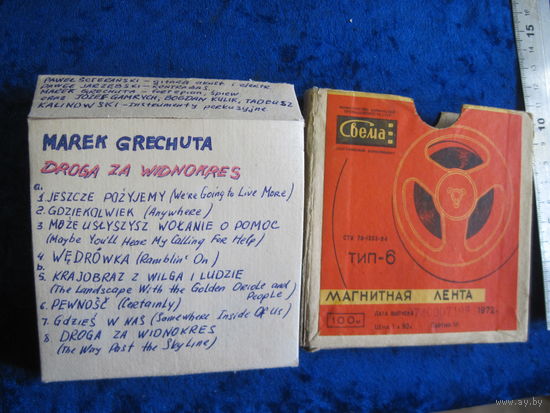 PAWEŁ ŚCIERAŃSKI - gitara akust i elektr
PAWEŁ JARZĘBSKI - kontrabas,
MAREK GRECHUTA - fortepian, śpiew
oraz JÓZEF GAMRYCH, BOGDAN KULIK, TADEUSZ
KALINOWSKI - instrumenty perkusyjne
MAREK GRECHUTA
DROGA ZA WIDNOKRES
a.
1. JESZCZE POŻYJEMY (We're Going to Live More)
2. GDZIEKOLWIEK (Anywhere)
3 MOŻE USŁYSZYSZ WOŁANIE O POMOC
(Maybe You'll Hear My Calling For Help)
4 WĘDRÓWKA (Ramblin' On)
b.
5. KRAJOBRAZ Z WILGĄ I LUDZIE
(The Landscape With the Golden Oriole and
People)
6. PEWNOŚĆ (Certainly)
7. Gdzieś w NAS (Somewhere Inside Of Us)
8 DROGA ZA WIDNOKRES
(The Way Past the Sky Line)
Свема
ТИП-6
МАГНИТНАЯ ЛЕНТА
100м
ДАТА ВЫПУСКА
1972
ЦЕНА 1 р. 90 к.
15
10
ay.by